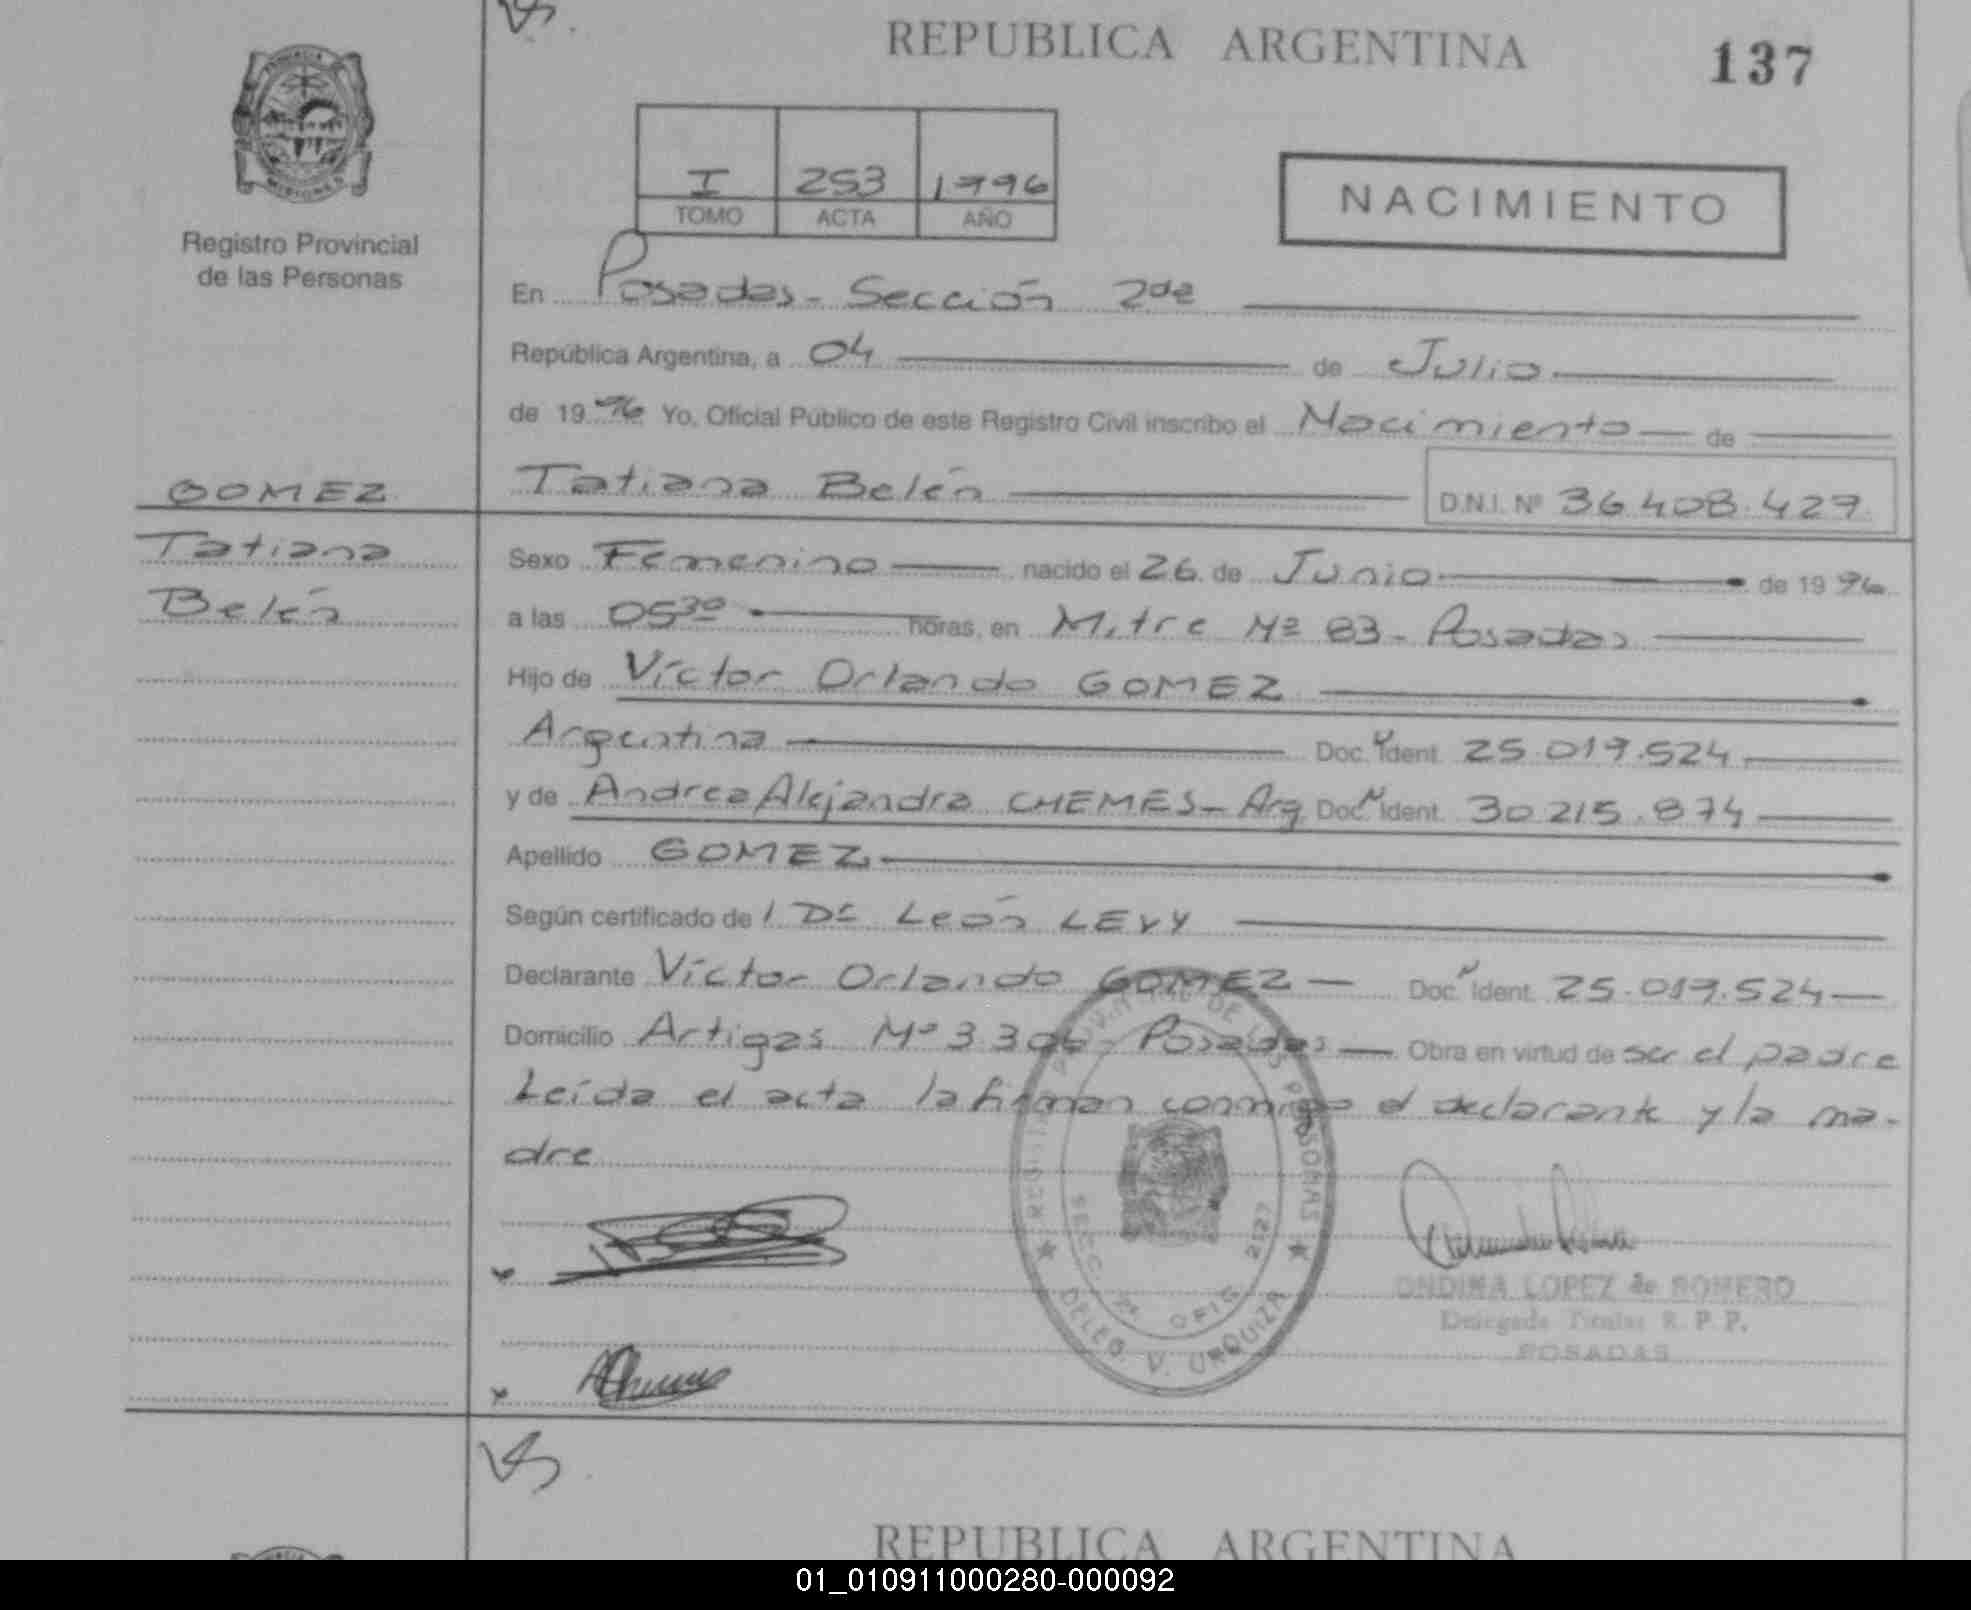 REPUBLICA ARGENTINA 137
I 253 1996
TOMO ACTA AÑO
NACIMIENTO
Registro Provincial
de las Personas
En Posadas - Sección 2da
República Argentina, a 04 de Julio
de 1996 Yo, Oficial Público de este Registro Civil inscribo el Nacimiento de
GOMEZ
Tatiana
Belén
Tatiana Belén D.N.I. Nº 36.408.429
Sexo Femenino nacido el 26 de Junio de 1996
a las 05³⁰ horas, en Mitre Nº 83 - Posadas
Hijo de Víctor Orlando GOMEZ
Argentina Doc. Ident. 25.019.524
y de Andrea Alejandra CHEMES - Arg. Doc. Ident. 30.215.874
Apellido GOMEZ
Según certificado de Dr León LEVY
Declarante Víctor Orlando GOMEZ Doc. Ident. 25.019.524
Domicilio Artigas Nº 3306 - Posadas Obra en virtud de ser el padre
Leída el acta la firman conmigo el declarante y la ma-
dre
REGISTRO PROVINCIAL DE LAS PERSONAS
SECC. 2ª OFIC. 2127
DELEG. V. URQUIZA
ONDINA LOPEZ de ROMERO
Delegada Titular R. P. P.
POSADAS
REPUBLICA ARGENTINA
01_010911000280-000092